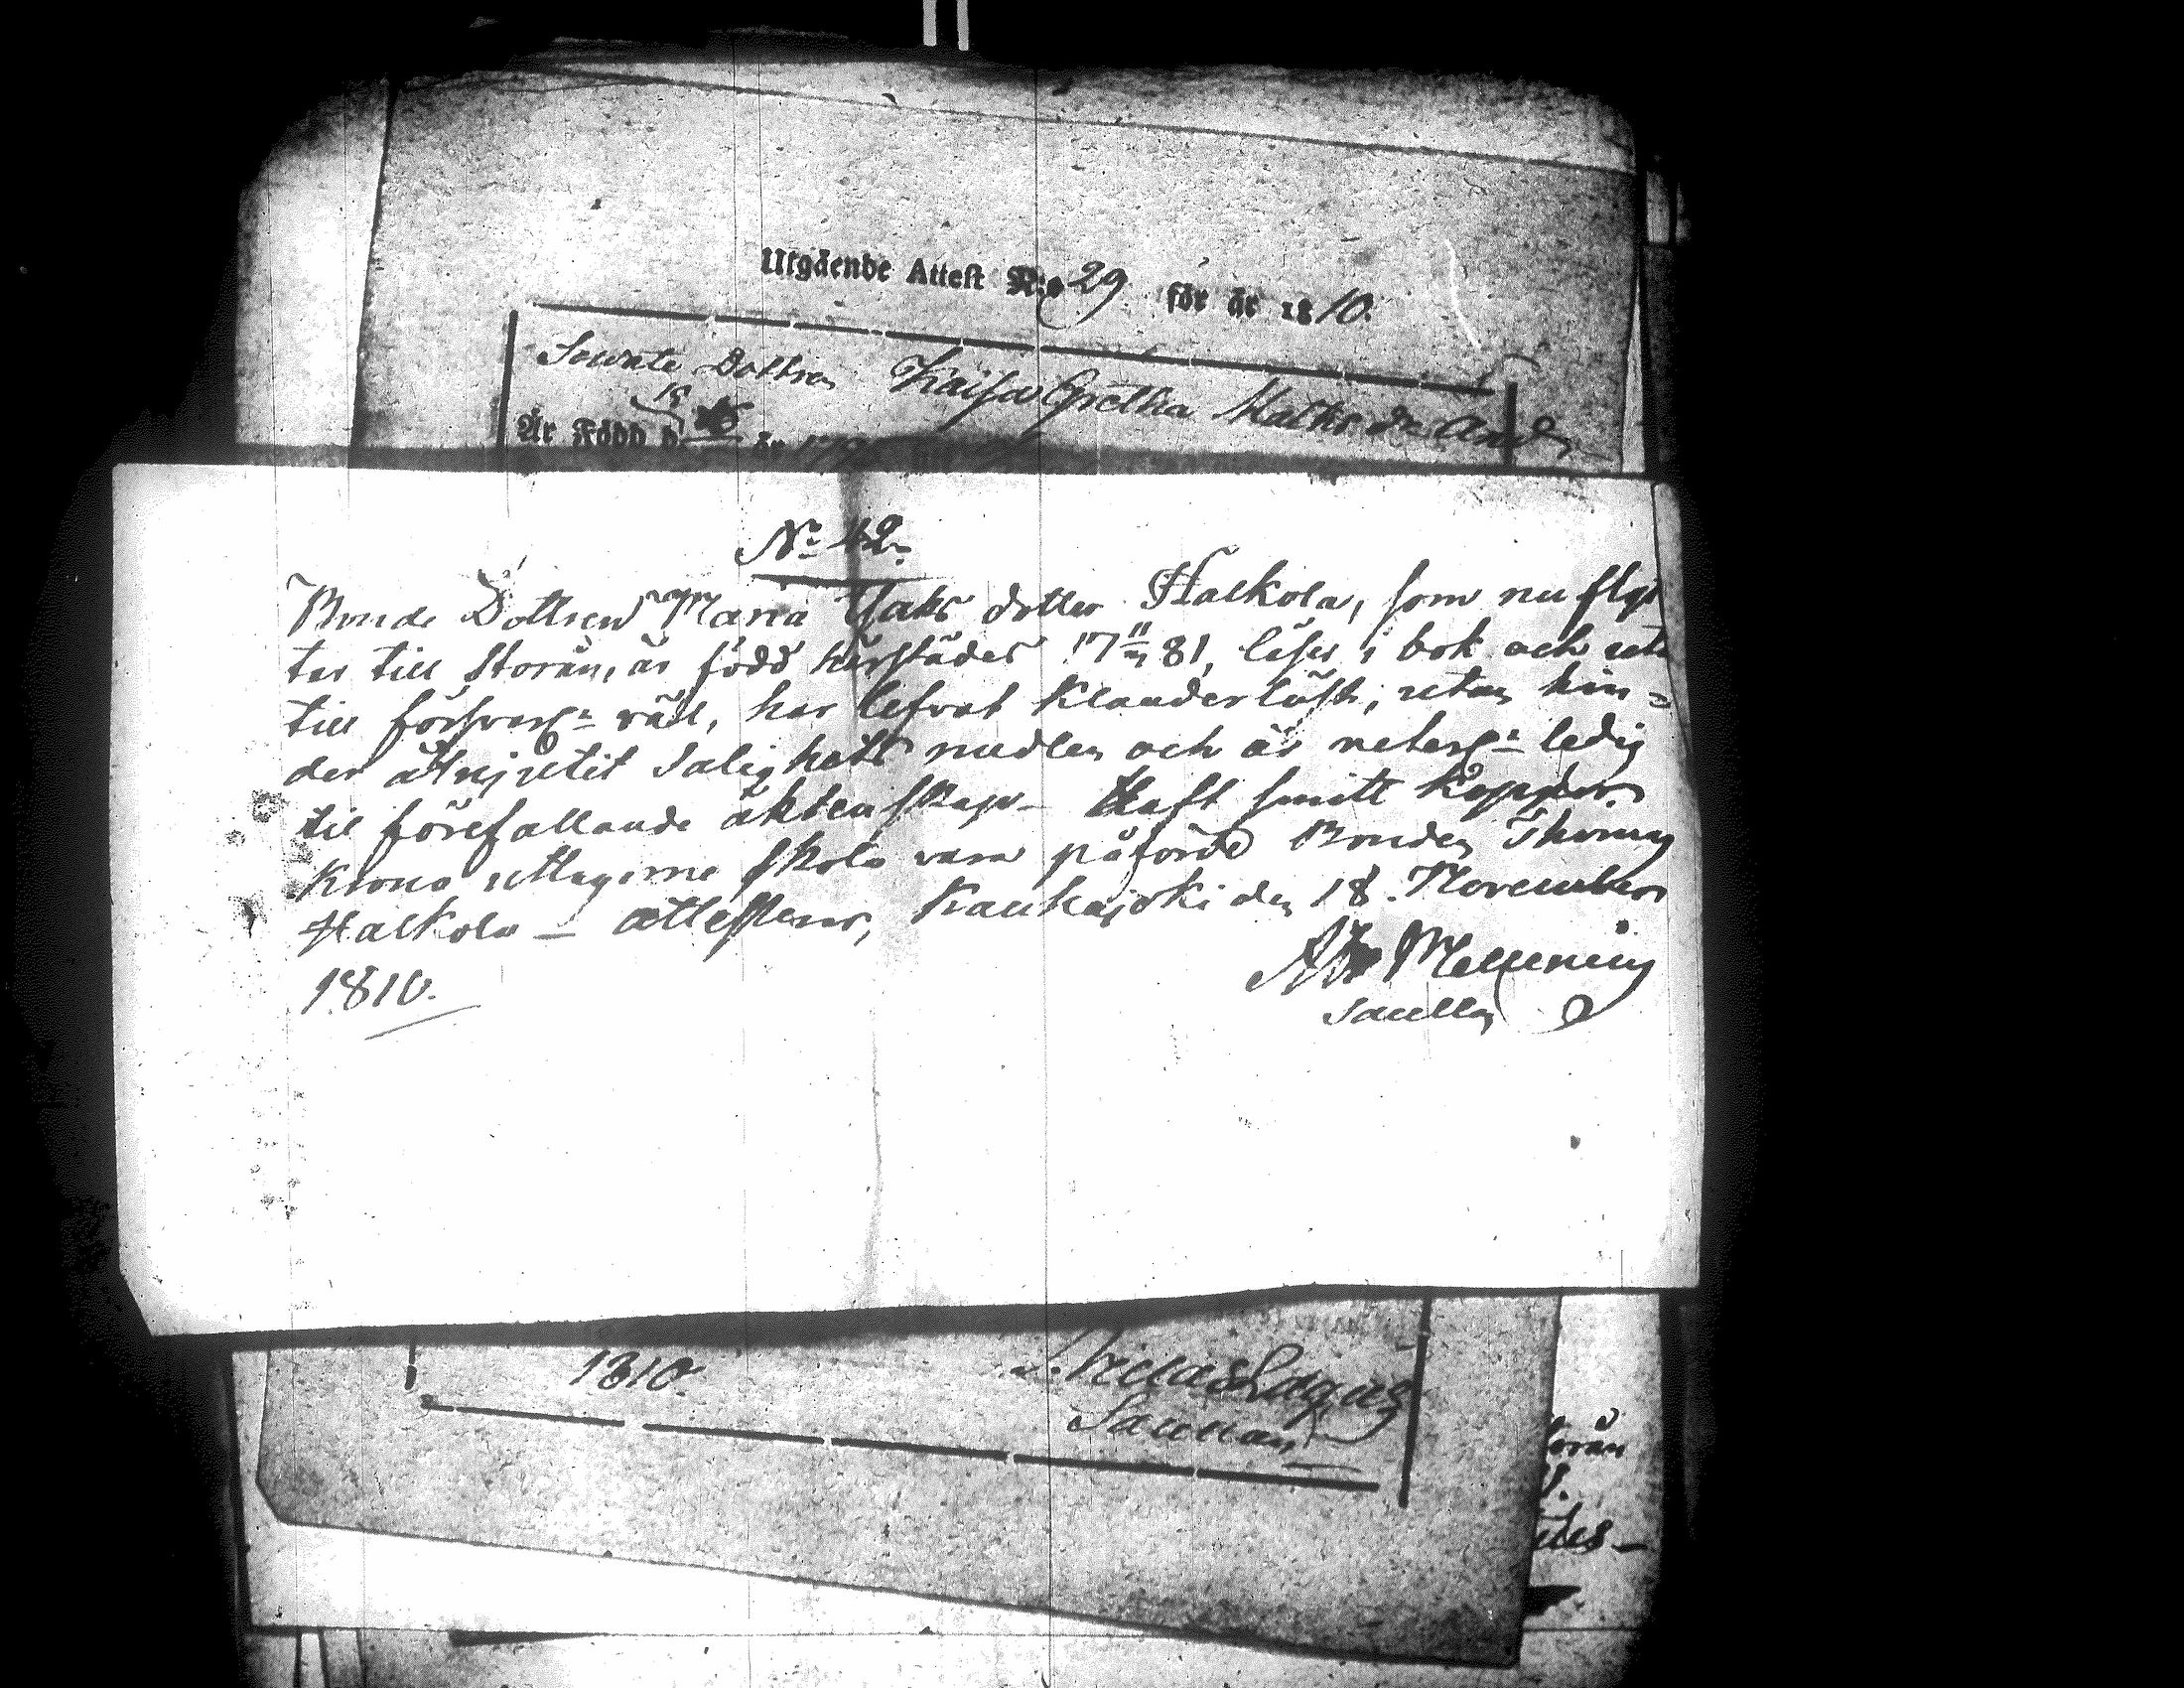 Utgående Attest N:o 29 för år 1810.
Dottren Kaisa Gretha Matts dr
Är Född d. 15 år
No 42.
Bonde Dottren Maria Jaks dotter Halkola, som nu flyt
tar till Storån, är född härstädes 17 11/ 81, läser i bok och uta
till försvarl: väl, har lefvat Klanderlöst, utan hin=
der åtnjutit Salighets medlen och är veterl: ledig
til förefallande äktenskap - Haft smitt koppor.
Krono utlagorne skola vara påförde Bonden Thomas
Halkola - attesteras, Kauhajoki den 18. November
1810.
Abr Mellenius
Sacellan
1810.
Lagus
Sacellan
orån